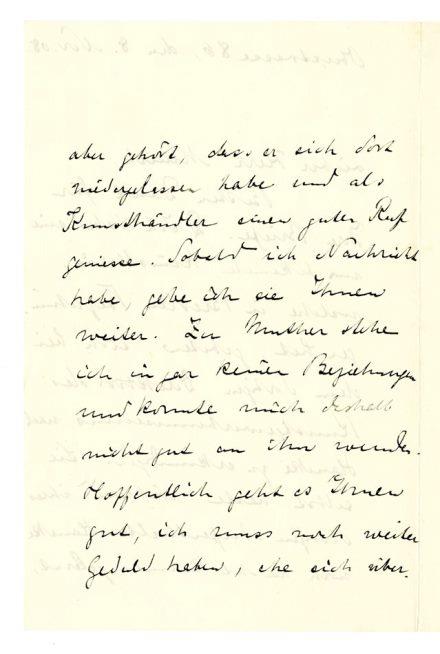 aber gehört, dass er sich dort
niedergelassen habe und als
Kunsthändler einen guten Ruf
geniesse. Sobald ich Nachricht
habe gebe ich sie Ihnen
weiter. Zu Muther stehe
ich in gar keinen Beziehungen
und konnte mich deshalb
nicht gut an ihn wenden.
Hoffentlich geht es Ihnen
gut, ich muss noch weiter
Geduld haben, ehe sich über-